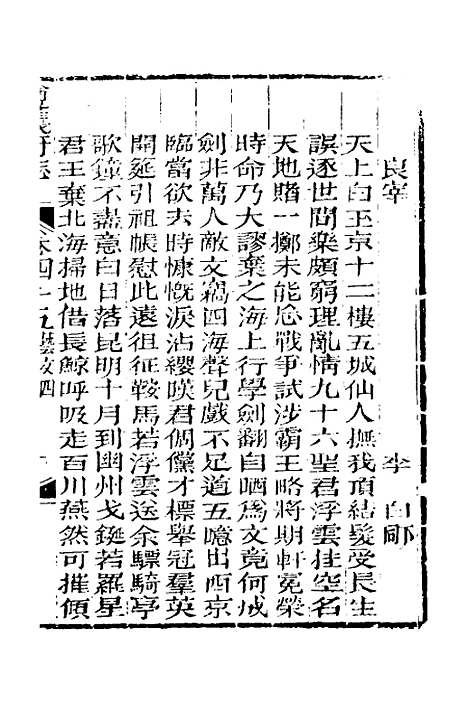 良宰　李白　郎
天上白玉京十二樓五城仙人撫我頂結髮受長生
誤逐世間樂頗窮理亂情九十六聖君浮雲挂空名
天地賭一擲未能忘戰爭試涉霸王略將期軒冕榮
時命乃大謬棄之海上行學劍翻自哂為文竟何成
劍非萬人敵文竊四海聲兒戲不足道五噫出西京
臨當欲去時慷慨淚沾纓嘆君倜儻才標舉冠羣英
開筵引祖帳慰此遠徂征鞍馬若浮雲送余驃騎亭
歌鐘不盡意白日落昆明十月到幽州戈鋋若羅星
君王棄北海掃地借長鯨呼吸走百川燕然可摧傾
遵義府志　卷四十五藝文四